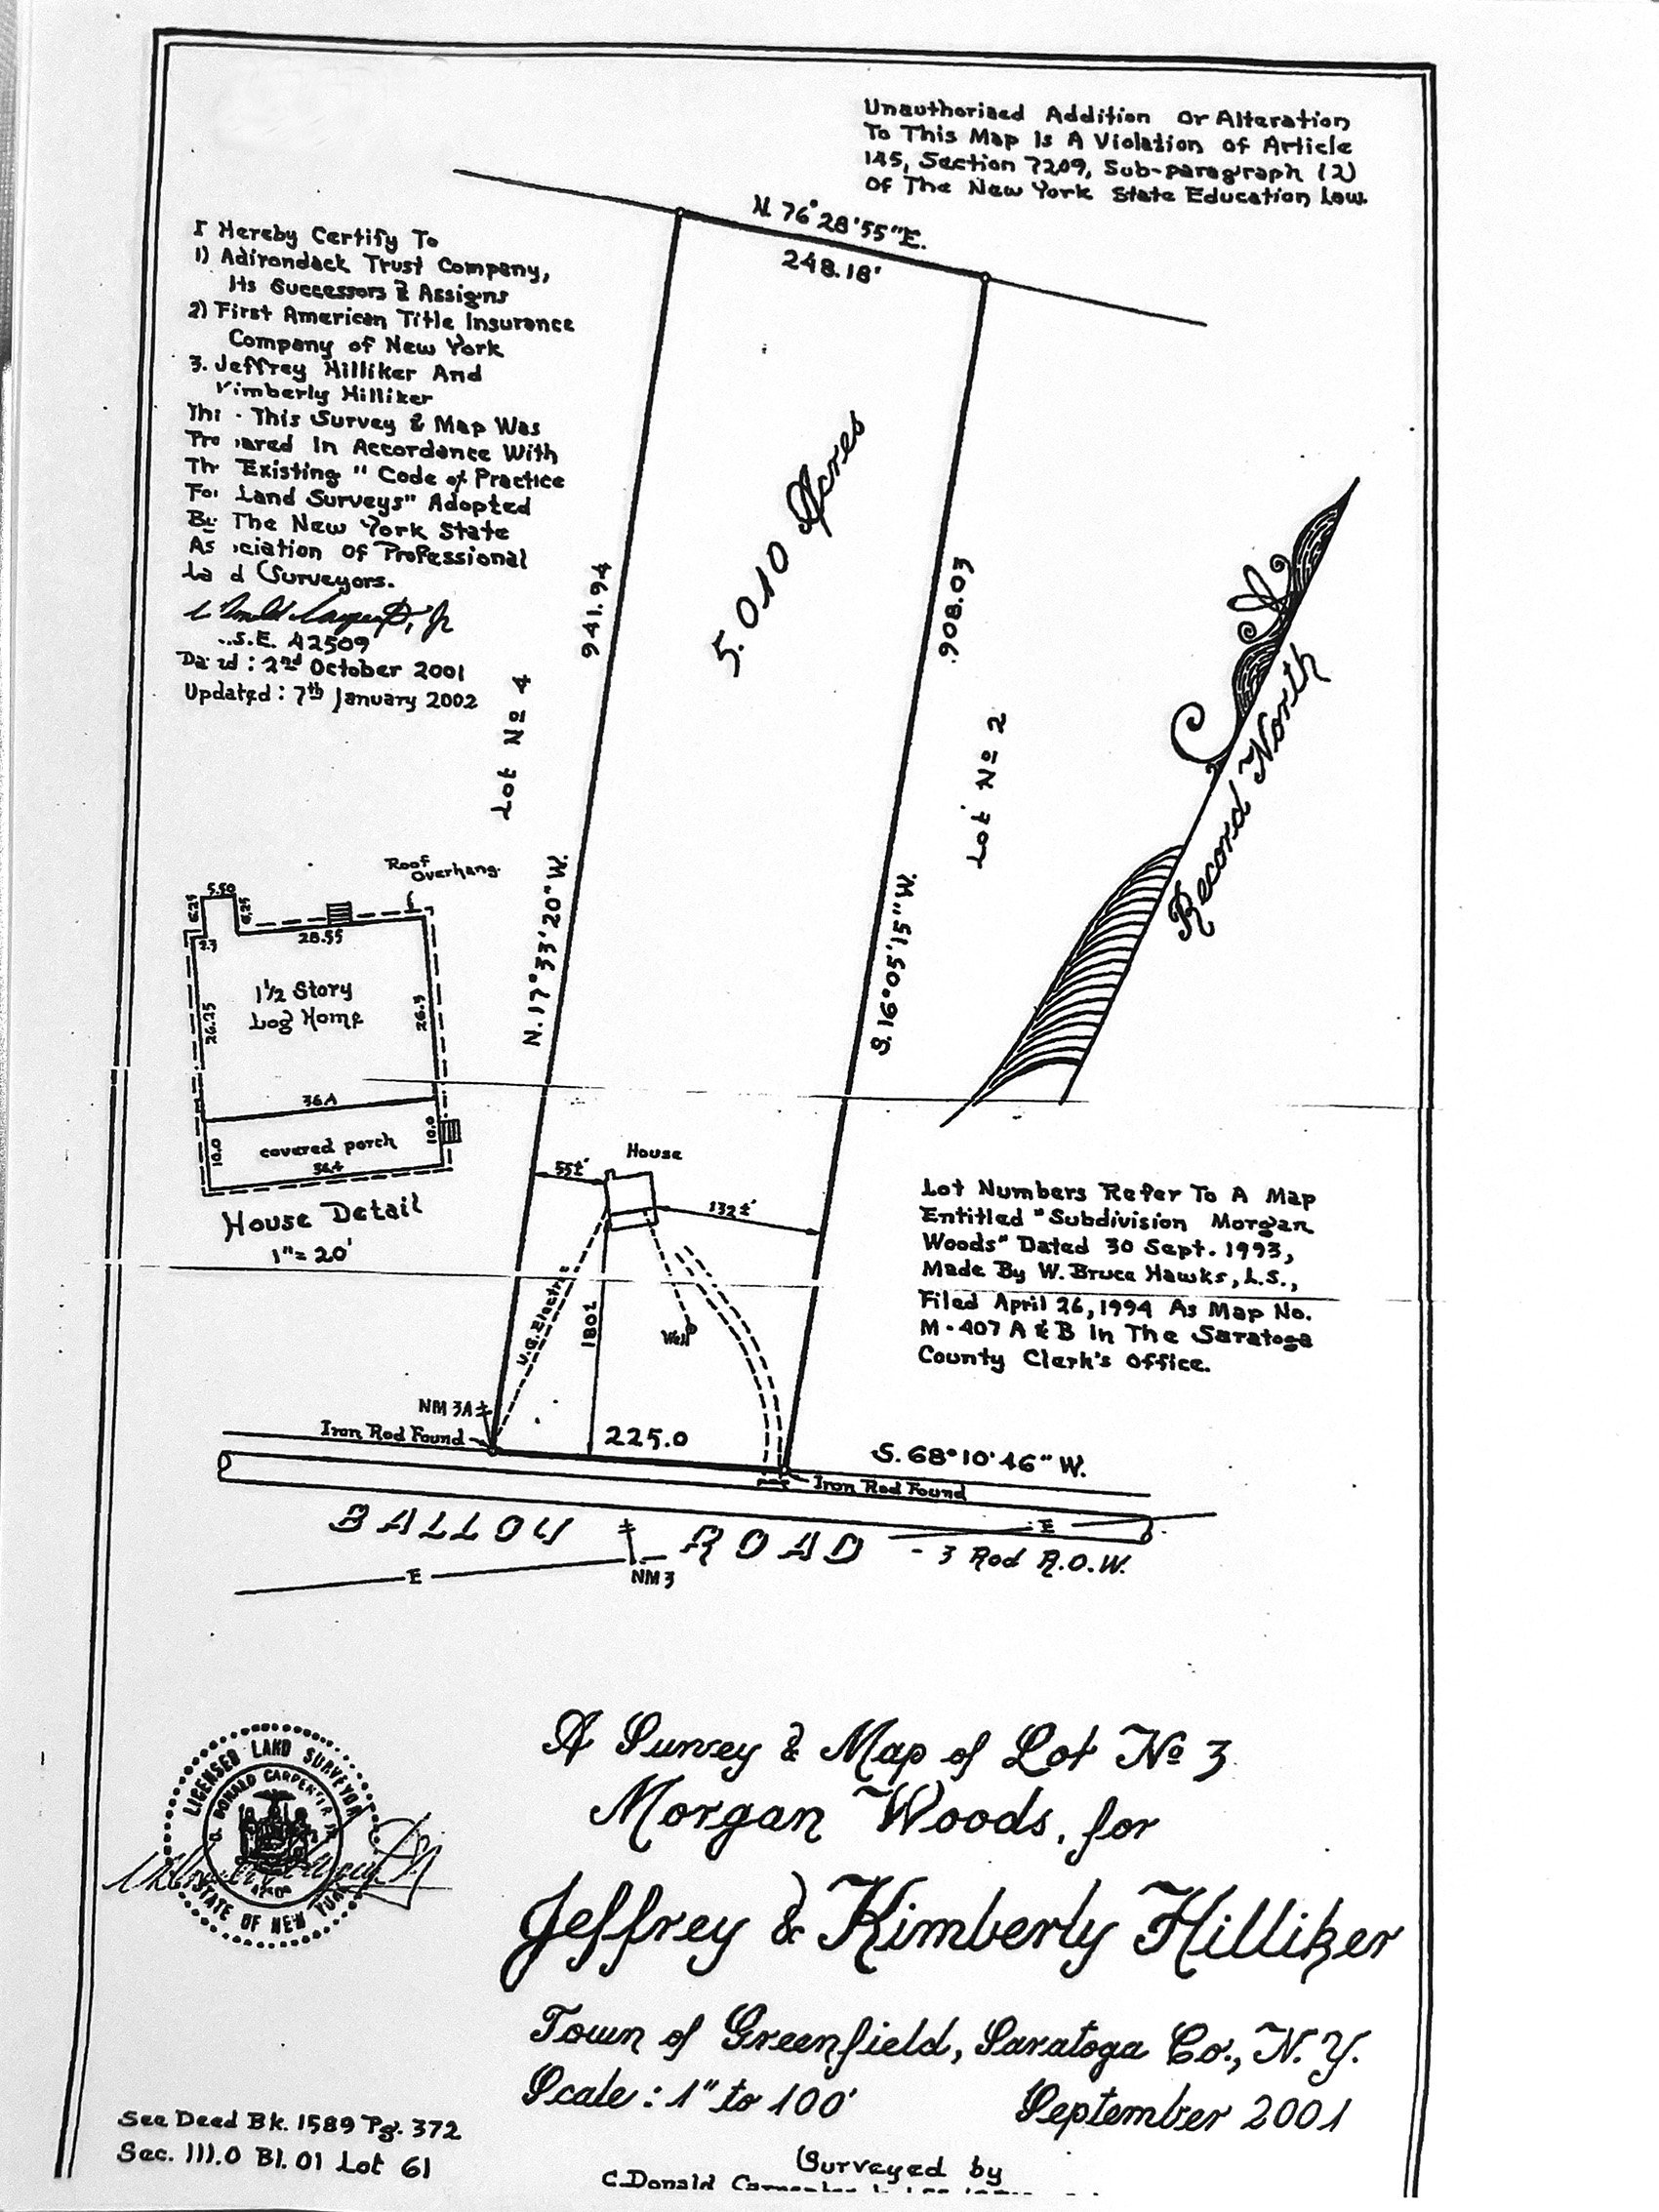 Unauthorized Addition Or Alteration
To This Map Is A Violation Of Article
145, Section 7209, Sub-paragraph (2)
Of The New York State Education Law.
N. 76° 28' 55" E.
248.18'
I Hereby Certify To
1) Adirondack Trust Company,
Its Successors & Assigns
2) First American Title Insurance
Company of New York
3. Jeffrey Hilliker And
Kimberly Hilliker
This Survey & Map Was
In Accordance With
Existing "Code of Practice
Land Surveys" Adopted
By The New York State
Of Professional
Surveyors.
42509
2nd October 2001
Updated: 7th January 2002
5.010 Acres
941.94
908.03
Lot No 4
Lot No 2
N. 17° 33' 20" W.
S. 16° 05' 15" W.
Record North
Roof
Overhang.
5.50
6.25
6.25
2.3
28.55
1½ Story
Log Home
26.25
26.5
36.4
10.0
10.0
covered porch
36.4
House Detail
1" = 20'
House
55±'
132±'
180±
U.G. Electric
Well
Lot Numbers Refer To A Map
Entitled "Subdivision Morgan
Woods" Dated 30 Sept. 1993,
Made By W. Bruce Hawks, L.S.,
Filed April 26, 1994 As Map No.
M-407 A & B In The Saratoga
County Clerk's Office.
NM 3A
Iron Rod Found
225.0
S. 68° 10' 46" W.
Iron Rod Found
BALLOU ROAD - 3 Rod R.O.W.
E
E
NM 3
LICENSED LAND SURVEYOR
C. DONALD CARPENTER JR
42509
STATE OF NEW YORK
A Survey & Map of Lot No 3
Morgan Woods, for
Jeffrey & Kimberly Hilliker
Town of Greenfield, Saratoga Co., N.Y.
Scale: 1" to 100'
September 2001
See Deed Bk. 1589 Pg. 372
Sec. 111.0 Bl. 01 Lot 61
Surveyed by
C. Donald Carpenter